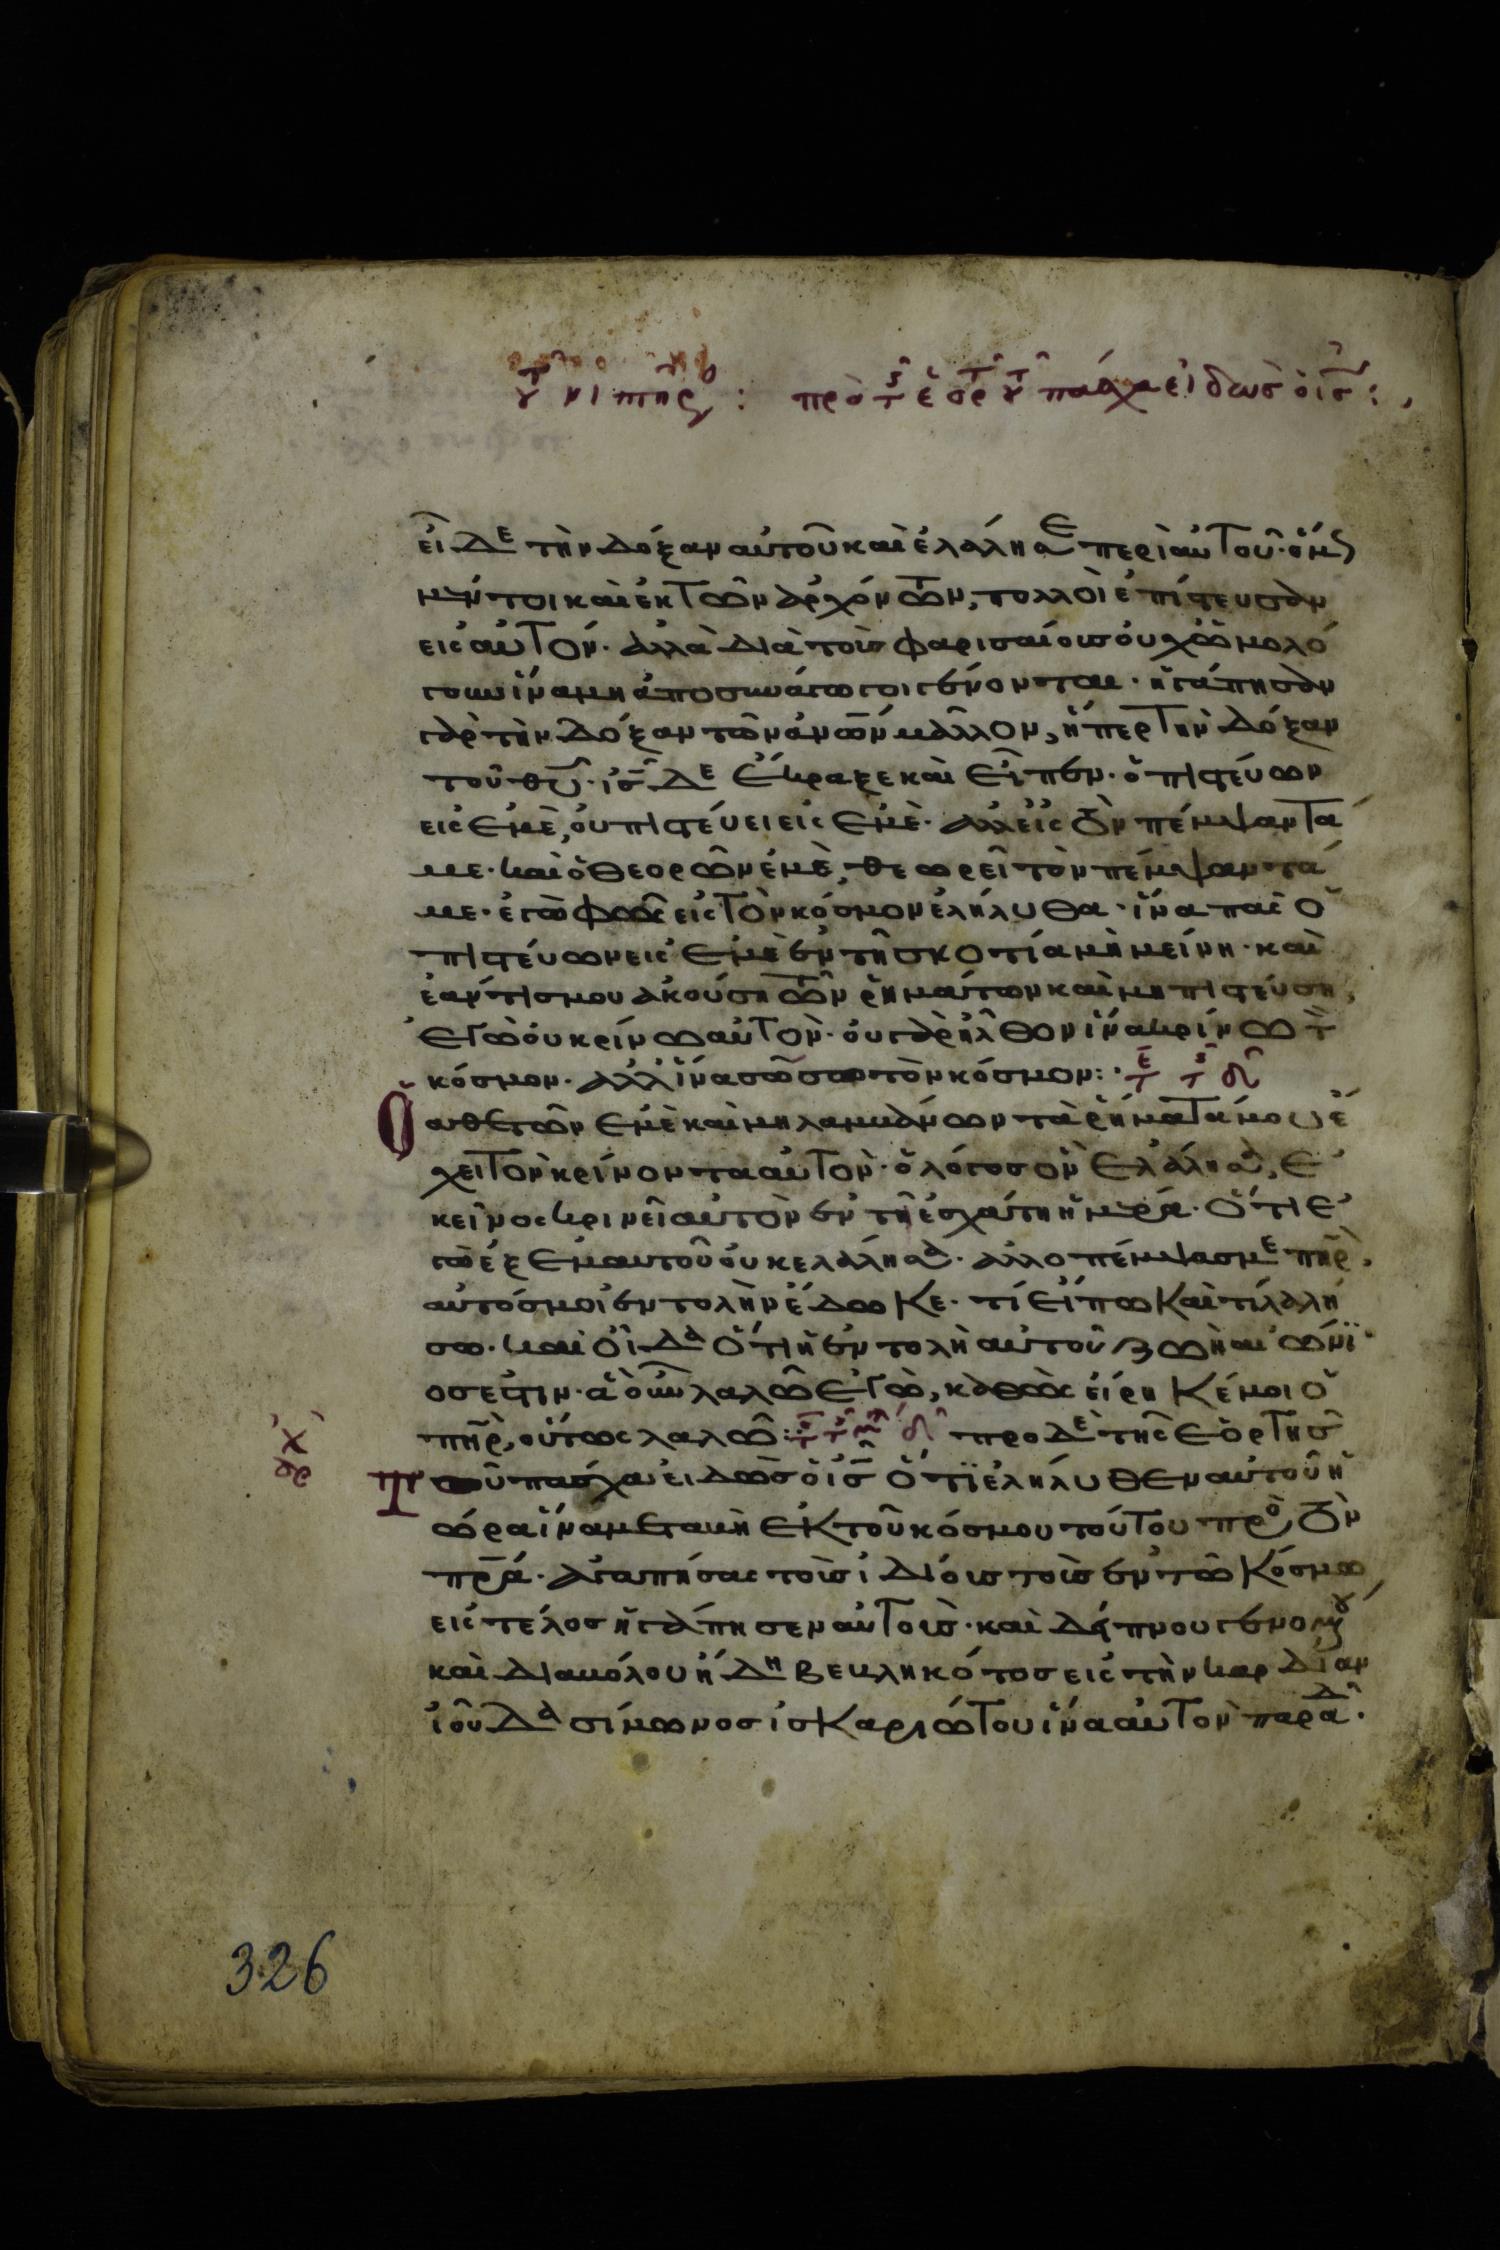 τοῦ νιπτῆρ : πρὸ τ ἑορ τοῦ πάσχα εἰδὼσ ὁ ισ :
εἶδε τὴν δόξαν αὐτοῦ καὶ ἐλάλησε περὶ αὐτοῦ· ὅμς
μέντοι καὶ ἐκ τῶν ἀρχόντων, πολλοὶ ἐπίστευσαν
εἰς αὐτόν· ἀλλὰ διὰ τοὺσ φαρισαίουσ οὐχ ὡμολό
γουν ἵνα μὴ ἀποσυνάγωγοι γένονται· ἠγάπησαν
γὰρ τὴν δόξαν τῶν ἀνῶν μᾶλλον, ἤπερ τὴν δόξαν
τοῦ θυ· ισ δὲ ἔκραξε καὶ εἶπεν· ὁ πιστεύων
εἰς ἐμὲ, οὐ πιστεύει εἰς ἐμὲ· ἀλλ εἰς τὸν πέμψαντά
με· καὶ ὁ θεορῶν ἐμὲ, θεωρεῖ τὸν πέμψαντά
με· ἐγὼ φῶς εἰς τὸν κόσμον ἐλήλυθα· ἵνα πας ὁ
πιστεύων εἰς ἐμὲ ἐν τῆ σκοτία μὴ μείνη· καὶ
ἐάν τισ μου ἀκούση τῶν ῥημάτων καὶ μὴ πιστεύση,
ἐγὼ οὐ κρίνω αὐτὸν· οὐ γὰρ ἦλθον ἵνα κρίνω τ
κόσμον· ἀλλ ἵνα σώσω τὸν κόσμον:·
Ὁ ἀθετῶν ἐμὲ καὶ μὴ λαμβάνων τὰ ῥήματά μου ἔ
χει τὸν κρίνοντα αὐτὸν· ὁ λόγοσ ὃν ἐλάλησα, ἐ
κεῖνος κρινεῖ αὐτὸν ἐν τῆ ἐσχάτη ἡμέρα· ὅτι ἐ
γὼ ἐξ ἐμαυτοῦ οὐκ ἐλάλησα· ἀλλ ο πέμψασ με πηρ,
αὐτόσ μοι ἐντολὴν ἔδωκε· τί εἴπω καὶ τί λαλή
σω· καὶ οἶδα ὅτι ἡ ἐντολὴ αὐτοῦ ζωὴ αἰώνϊ
οσ ἐστιν· ἃ οὖν λαλῶ ἐγὼ, καθὼς εἴρηκέ μοι ὁ
πηρ, οὕτως λαλῶ: προ δὲ τῆς ἑορτῆσ
τοῦ πάσχα εἰδὼσ ὁ ισ ὅτϊ ἐλήλυθεν αὐτοῦ ἡ
ὥρα ἵνα μεταβῆ ἐκ τοῦ κόσμου τούτου πρὸ τὸν
πρα· ἀγαπήσας τοὺσ ἰδίουσ τοὺσ ἐν τῶ κόσμω
εἰς τέλοσ ἠγάπησεν αὐτοὺσ· καὶ δείπνου γενομου
καὶ διαβόλου ἤδη βεβληκότοσ εἰς τὴν καρδίαν
ἰούδα σίμωνοσ ἰσκαριώτου ἵνα αὐτὸν παραδ·
326